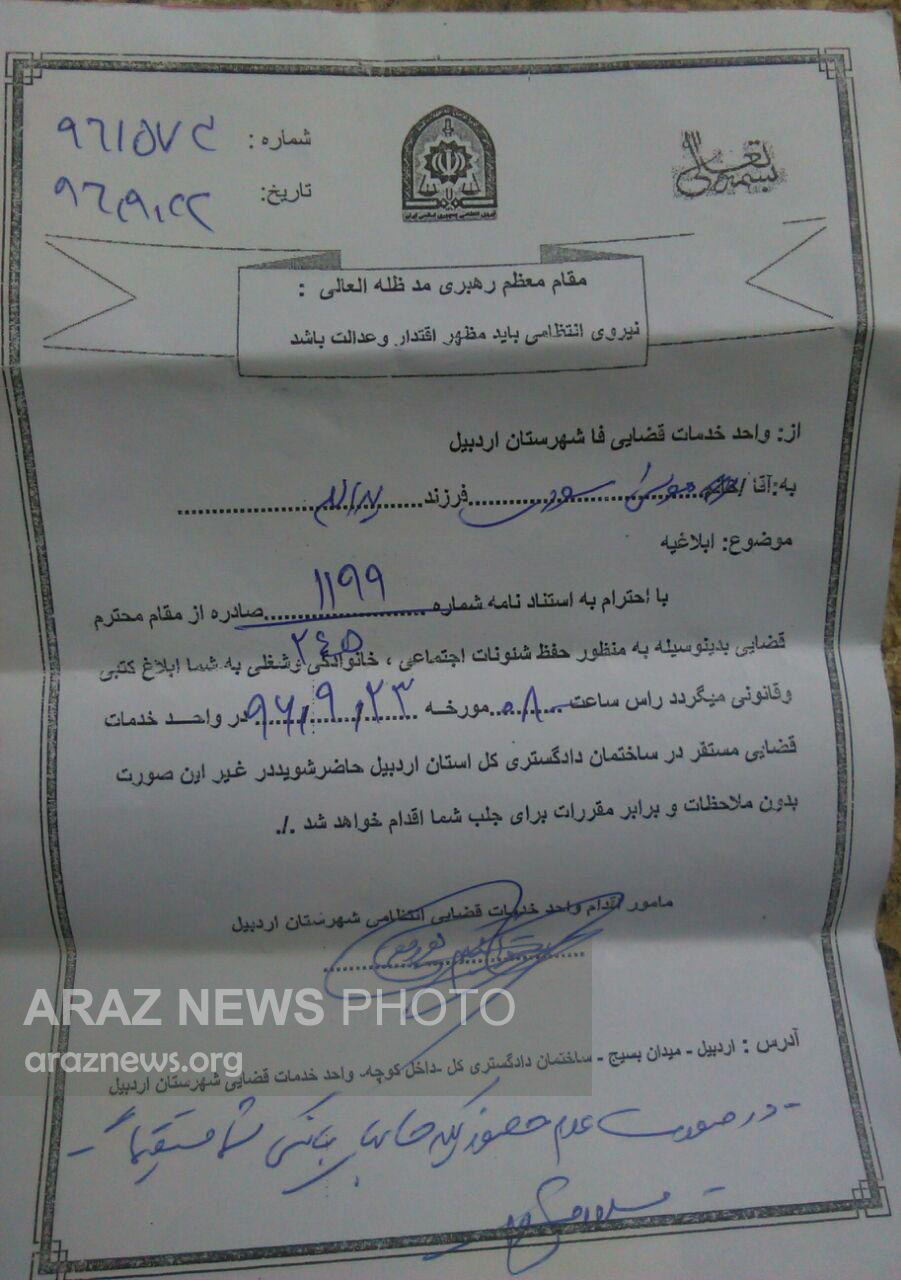 بسمه تعالی
شماره : ۹۶۱۵۷۴
تاریخ: ۹۶/۹/۲۲
نیروی انتظامی جمهوری اسلامی ایران
مقام معظم رهبری مد ظله العالی :
نیروی انتظامی باید مظهر اقتدار وعدالت باشد
از: واحد خدمات قضایی فا شهرستان اردبیل
به:آقا / فرزند یداله
موضوع: ابلاغیه
با احترام به استناد نامه شماره ۱۱۹۹ صادره از مقام محترم
قضایی بدینوسیله به منظور حفظ شئونات اجتماعی ، خانوادگی وشغلی به شما ابلاغ کتبی
وقانونی میگردد راس ساعت ۰۸ مورخه ۹۶/۹/۲۳ در واحد خدمات
قضایی مستقر در ساختمان دادگستری کل استان اردبیل حاضرشویددر غیر این صورت
بدون ملاحظات و برابر مقررات برای جلب شما اقدام خواهد شد ./.
مامور اقدام واحد خدمات قضایی انتظامی شهرستان اردبیل
ARAZ NEWS PHOTO
araznews.org
آدرس : اردبیل - میدان بسیج - ساختمان دادگستری کل -داخل کوچه- واحد خدمات قضایی شهرستان اردبیل
- در صورت عدم حضور کلیه حسابهای بانکی شما مستقیماً -
مسدود میشود